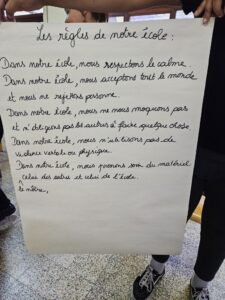 Les règles de notre école :
Dans notre école, nous respectons le calme.
Dans notre école, nous acceptons tout le monde
et nous ne rejetons personne.
Dans notre école, nous ne nous moquons pas
et n'obligeons pas les autres à faire quelque chose.
Dans notre école, nous n'utilisons pas de
violence verbale ou physique.
Dans notre école, nous prenons soin du matériel
celui des autres et celui de l'école.
le nôtre,